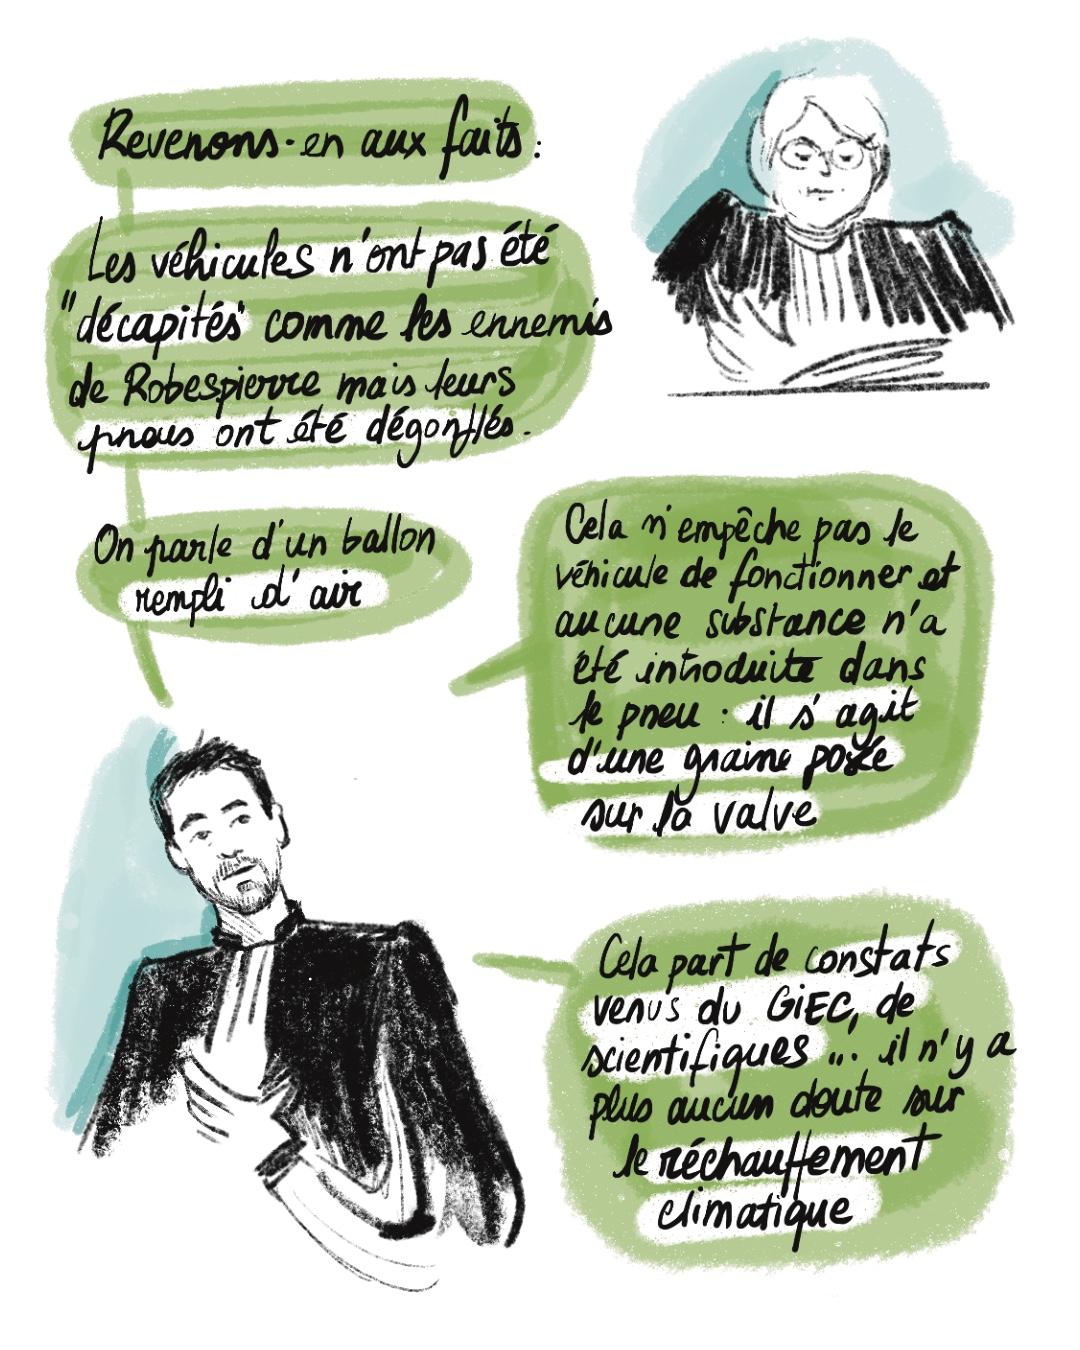 Revenons-en aux faits :
Les véhicules n'ont pas été
"décapités" comme les ennemis
de Robespierre mais leurs
pneus ont été dégonflés.
On parle d'un ballon
rempli d'air
Cela n'empêche pas le
véhicule de fonctionner et
aucune substance n'a
été introduite dans
le pneu : il s'agit
d'une graine posée
sur la valve
Cela part de constats
venus du GiEC, de
scientifiques ... il n'y a
plus aucun doute sur
le réchauffement
climatique